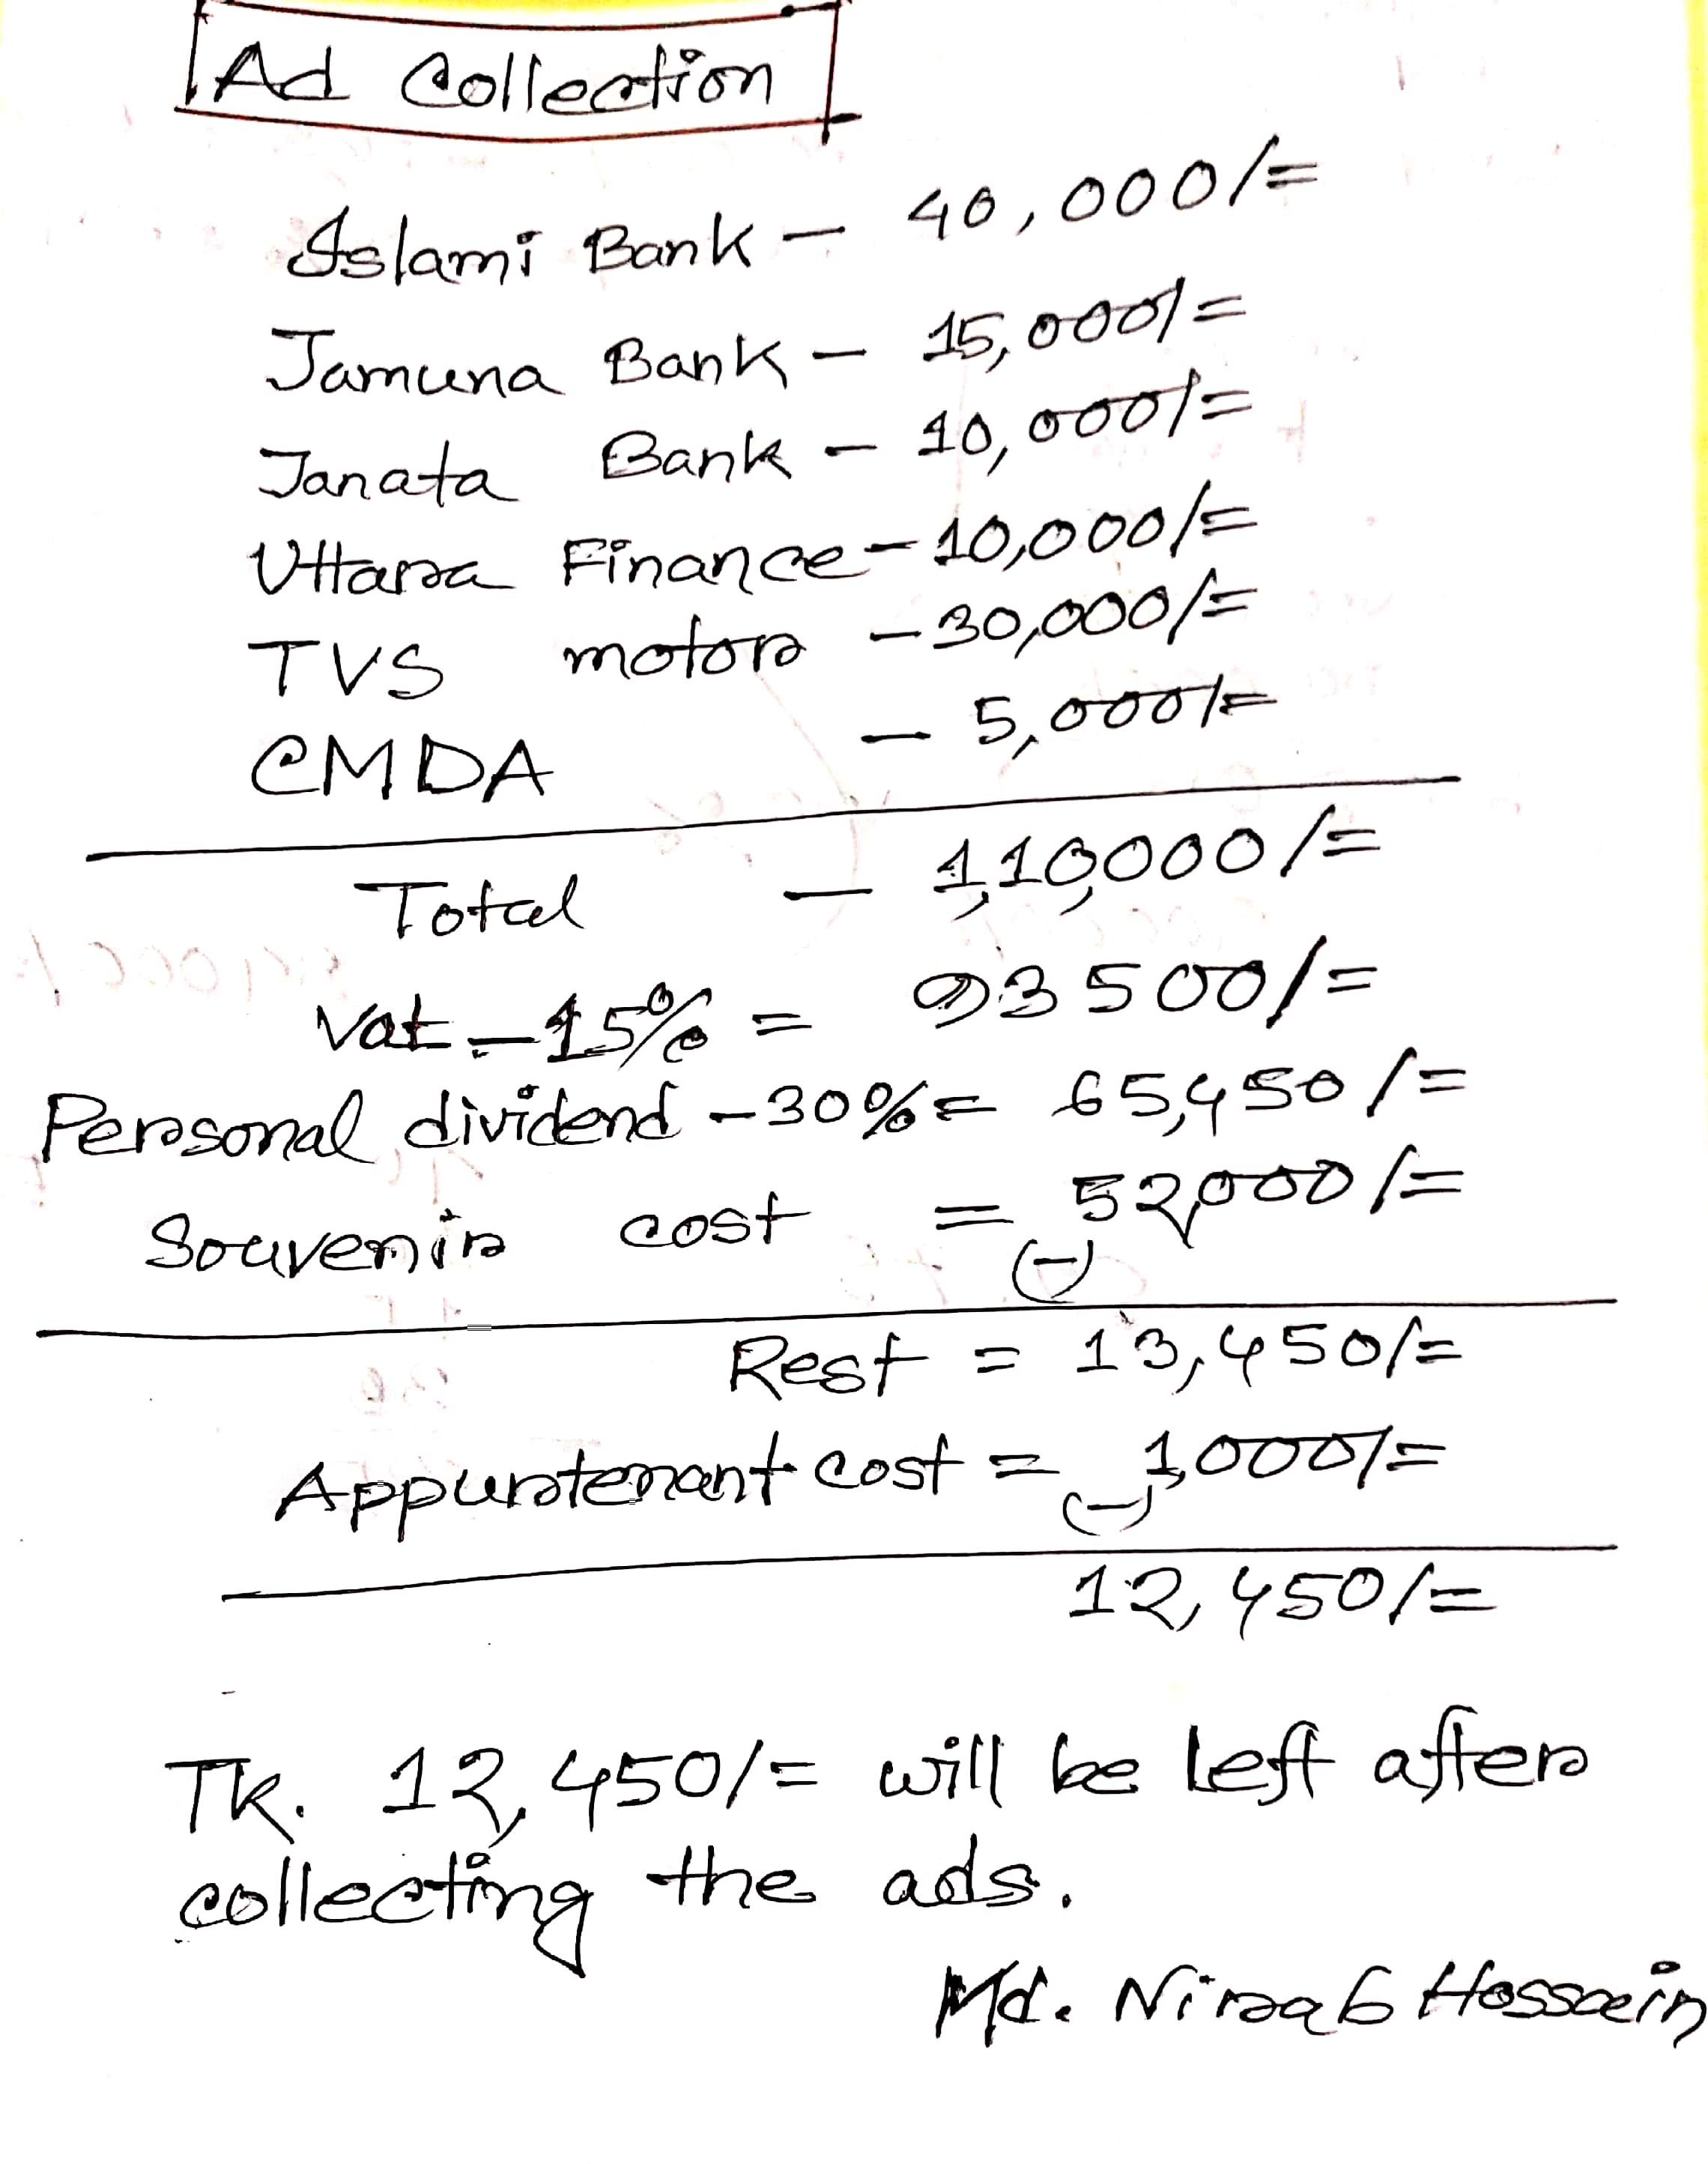 Ad Collection
Islami Bank - 40,000/=
Jamuna Bank - 15,000/=
Janata Bank - 10,000/=
Uttara Finance - 10,000/=
TVS motor - 30,000/=
CMDA - 5,000/=
Total - 1,10,000/=
Vat - 15% = 93500/=
Personal dividend - 30% = 65,450/=
Souvenir cost = 52,000/=
(-)
Rest = 13,450/=
Appurtenant cost = 1,000/=
(-)
12,450/=
TK. 12,450/= will be left after
collecting the ads.
Md. Nirab Hossain